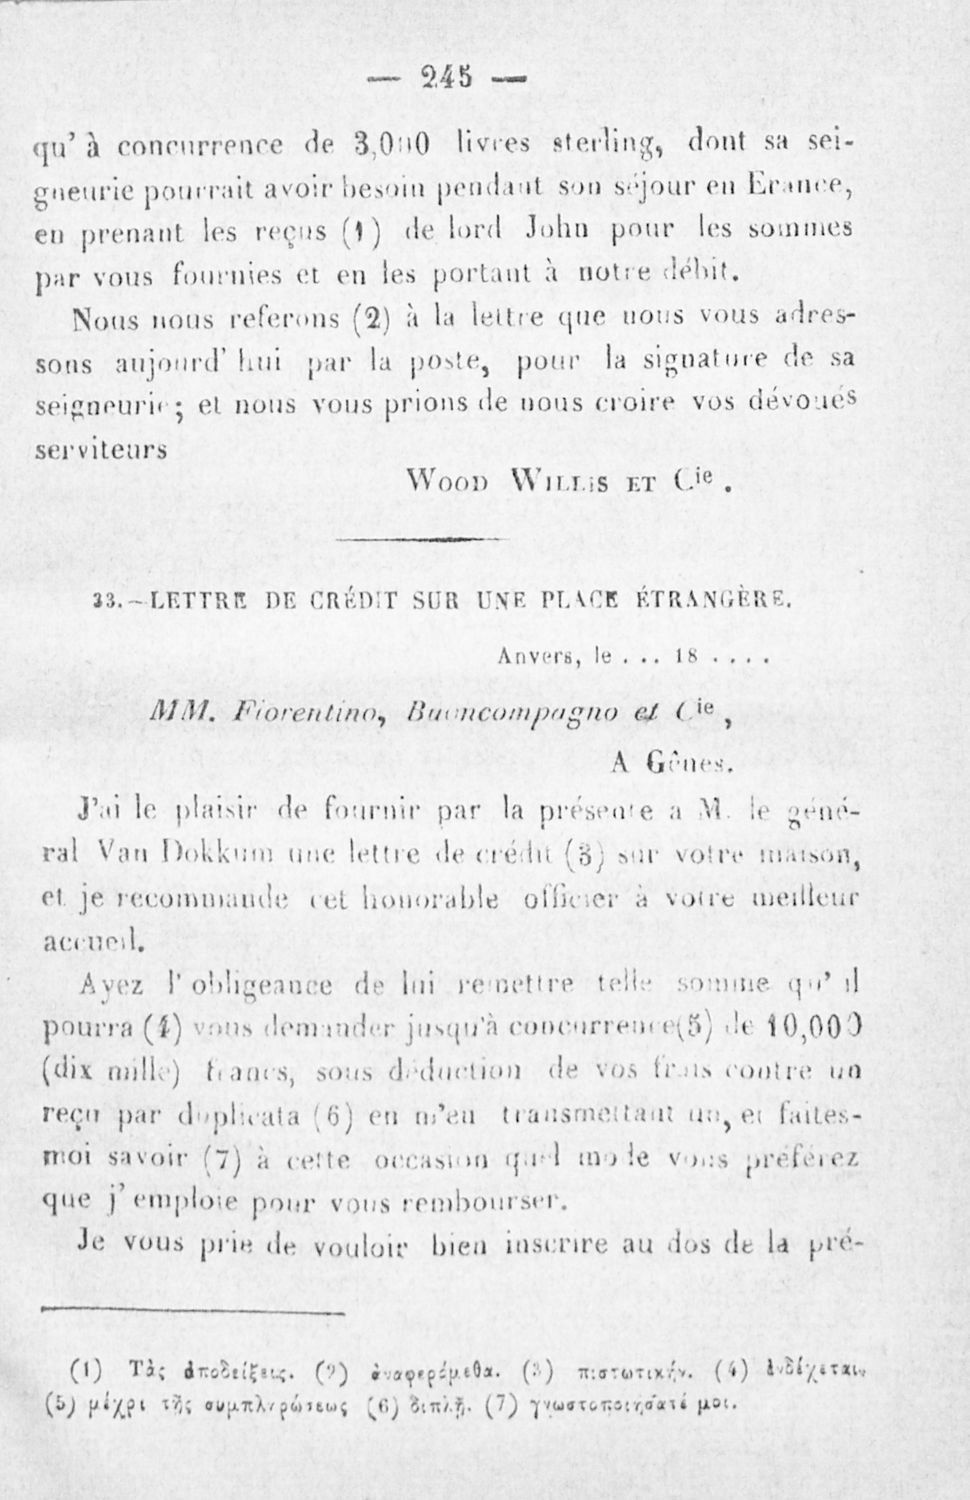 — 245 —
qu' à concurrence de 3,000 livres sterling, dont sa sei-
gneurie pourrait avoir besoin pendant son séjour en Erance,
en prenant les reçus (1) de lord John pour les sommes
par vous fournies et en les portant à notre débit.
Nous nous referons (2) à la lettre que nous vous adres-
sons aujourd' hui par la poste, pour la signature de sa
seigneurie; et nous vous prions de nous croire vos dévoués
serviteurs
WOOD WILLIS ET Cie .
33.—LETTRE DE CRÉDIT SUR UNE PLACE ÉTRANGÈRE.
Anvers, le . ... 18 ....
MM. Fiorentino, Buoncompagno et Cie ,
A Gênes.
J'ai le plaisir de fournir par la présente a M. le géné-
ral Van Dokkum une lettre de crédit (3) sur votre maison,
et je recommande cet honorable officier à votre meilleur
accueil.
Ayez l' obligeance de lui remettre telle somme qu' il
pourra (4) vous demander jusqu'à concurrence(5) de 10,000
(dix mille) francs, sous déduction de vos frais contre un
reçu par duplicata (6) en m'en transmettant un, et faites-
moi savoir (7) à cette occasion quel mode vous préférez
que j' emploie pour vous rembourser.
Je vous prie de vouloir bien inscrire au dos de la pré-
(1) Τὰς ἀποδείξεις. (2) ἀναφερόμεθα. (3) πιστωτικήν. (4) ἐνδέχεται.
(5) μέχρι τῆς συμπληρώσεως (6) διπλῆ. (7) γνωστοποιήσατέ μοι.